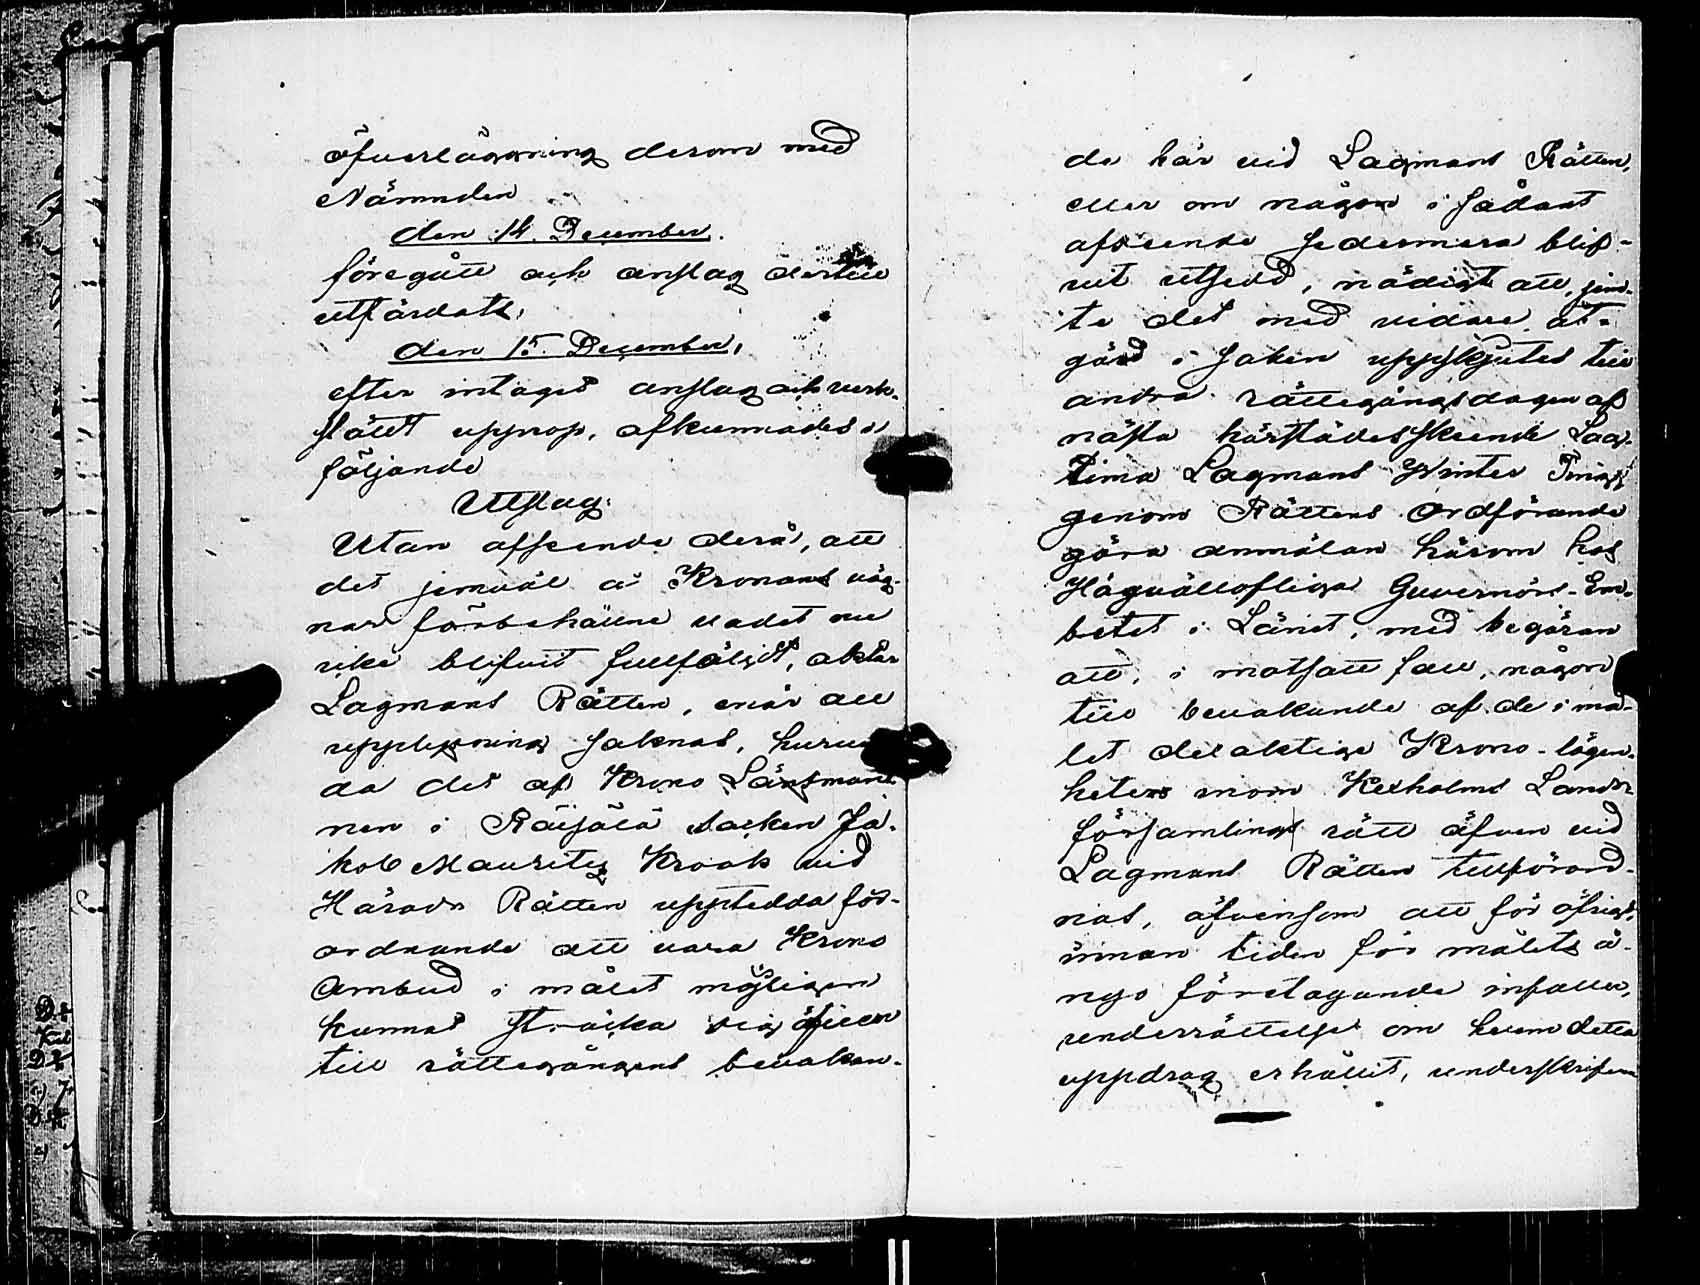 öfverläggning derom med
Nämnden
den 14. December.
föregått och anslag dertill
utfärdats,
den 15. December,
efter intaget anslag och verk-
stäldt upprop, afkunnades
följande
Utslag:
Utan afseende derå, att
det jemväl å Kronans väg-
nar förbehållne vadet nu
icke blifvit fullföljdt, aktar
Lagmans Rätten, enär all
upplysning saknas, huru
da det af Krono Länsman-
nen i Räisälä Socken Ja-
kob Mauritz Krook vid
Härads Rätten uppteedda för-
ordnande att vara Krono
Ombud i målet möjligen
kunnat sträcka sig äfven
till rättegångens bevakan-
de här vid Lagmans Rätten,
eller om någon i sådant
afseende sedermera blif-
vit utsedd, nödigt att, jem-
te det med vidare åt-
gärd i saken uppskjutes till
andra rättegångsdagen af
nästa härstädes skeende Lag-
tima Lagmans Winter Ting,
genom Rättens Ordförande
göra anmälan härom hos
Högvällofliga Guvernörs-Em-
betet i Länet, med begäran
att, i motsatt fall, någon
till bevakande af de i må-
let delaktiga Krono-lägen-
heters inom Kexholms Lands
församlings rätt äfven vid
Lagmans Rätten tillförord-
nas, äfvensom att för öfrigt,
innan tiden för målets å-
nyo företagande infaller,
underrättelse om hvem detta
uppdrag erhållit, underskrifven